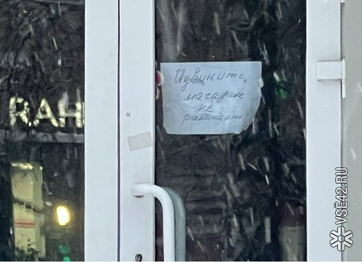 Извините,
магазин
не
работает
ЯАН
VSE42.RU